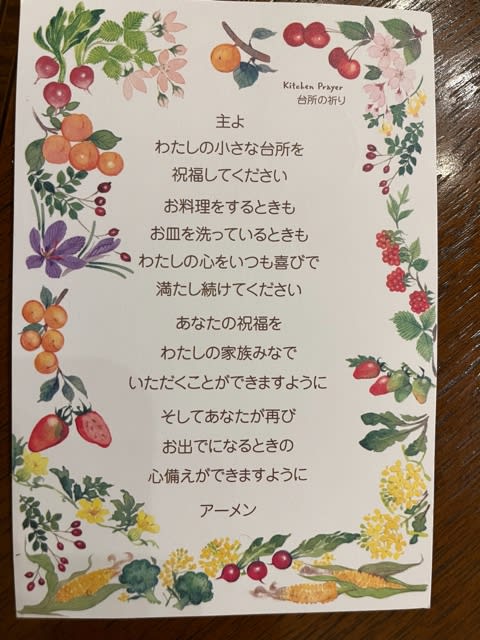 Kitchen Prayer
台所の祈り
主よ
わたしの小さな台所を
祝福してください
お料理をするときも
お皿を洗っているときも
わたしの心をいつも喜びで
満たし続けてください
あなたの祝福を
わたしの家族みなで
いただくことができますように
そしてあなたが再び
お出でになるときの
心備えができますように
アーメン